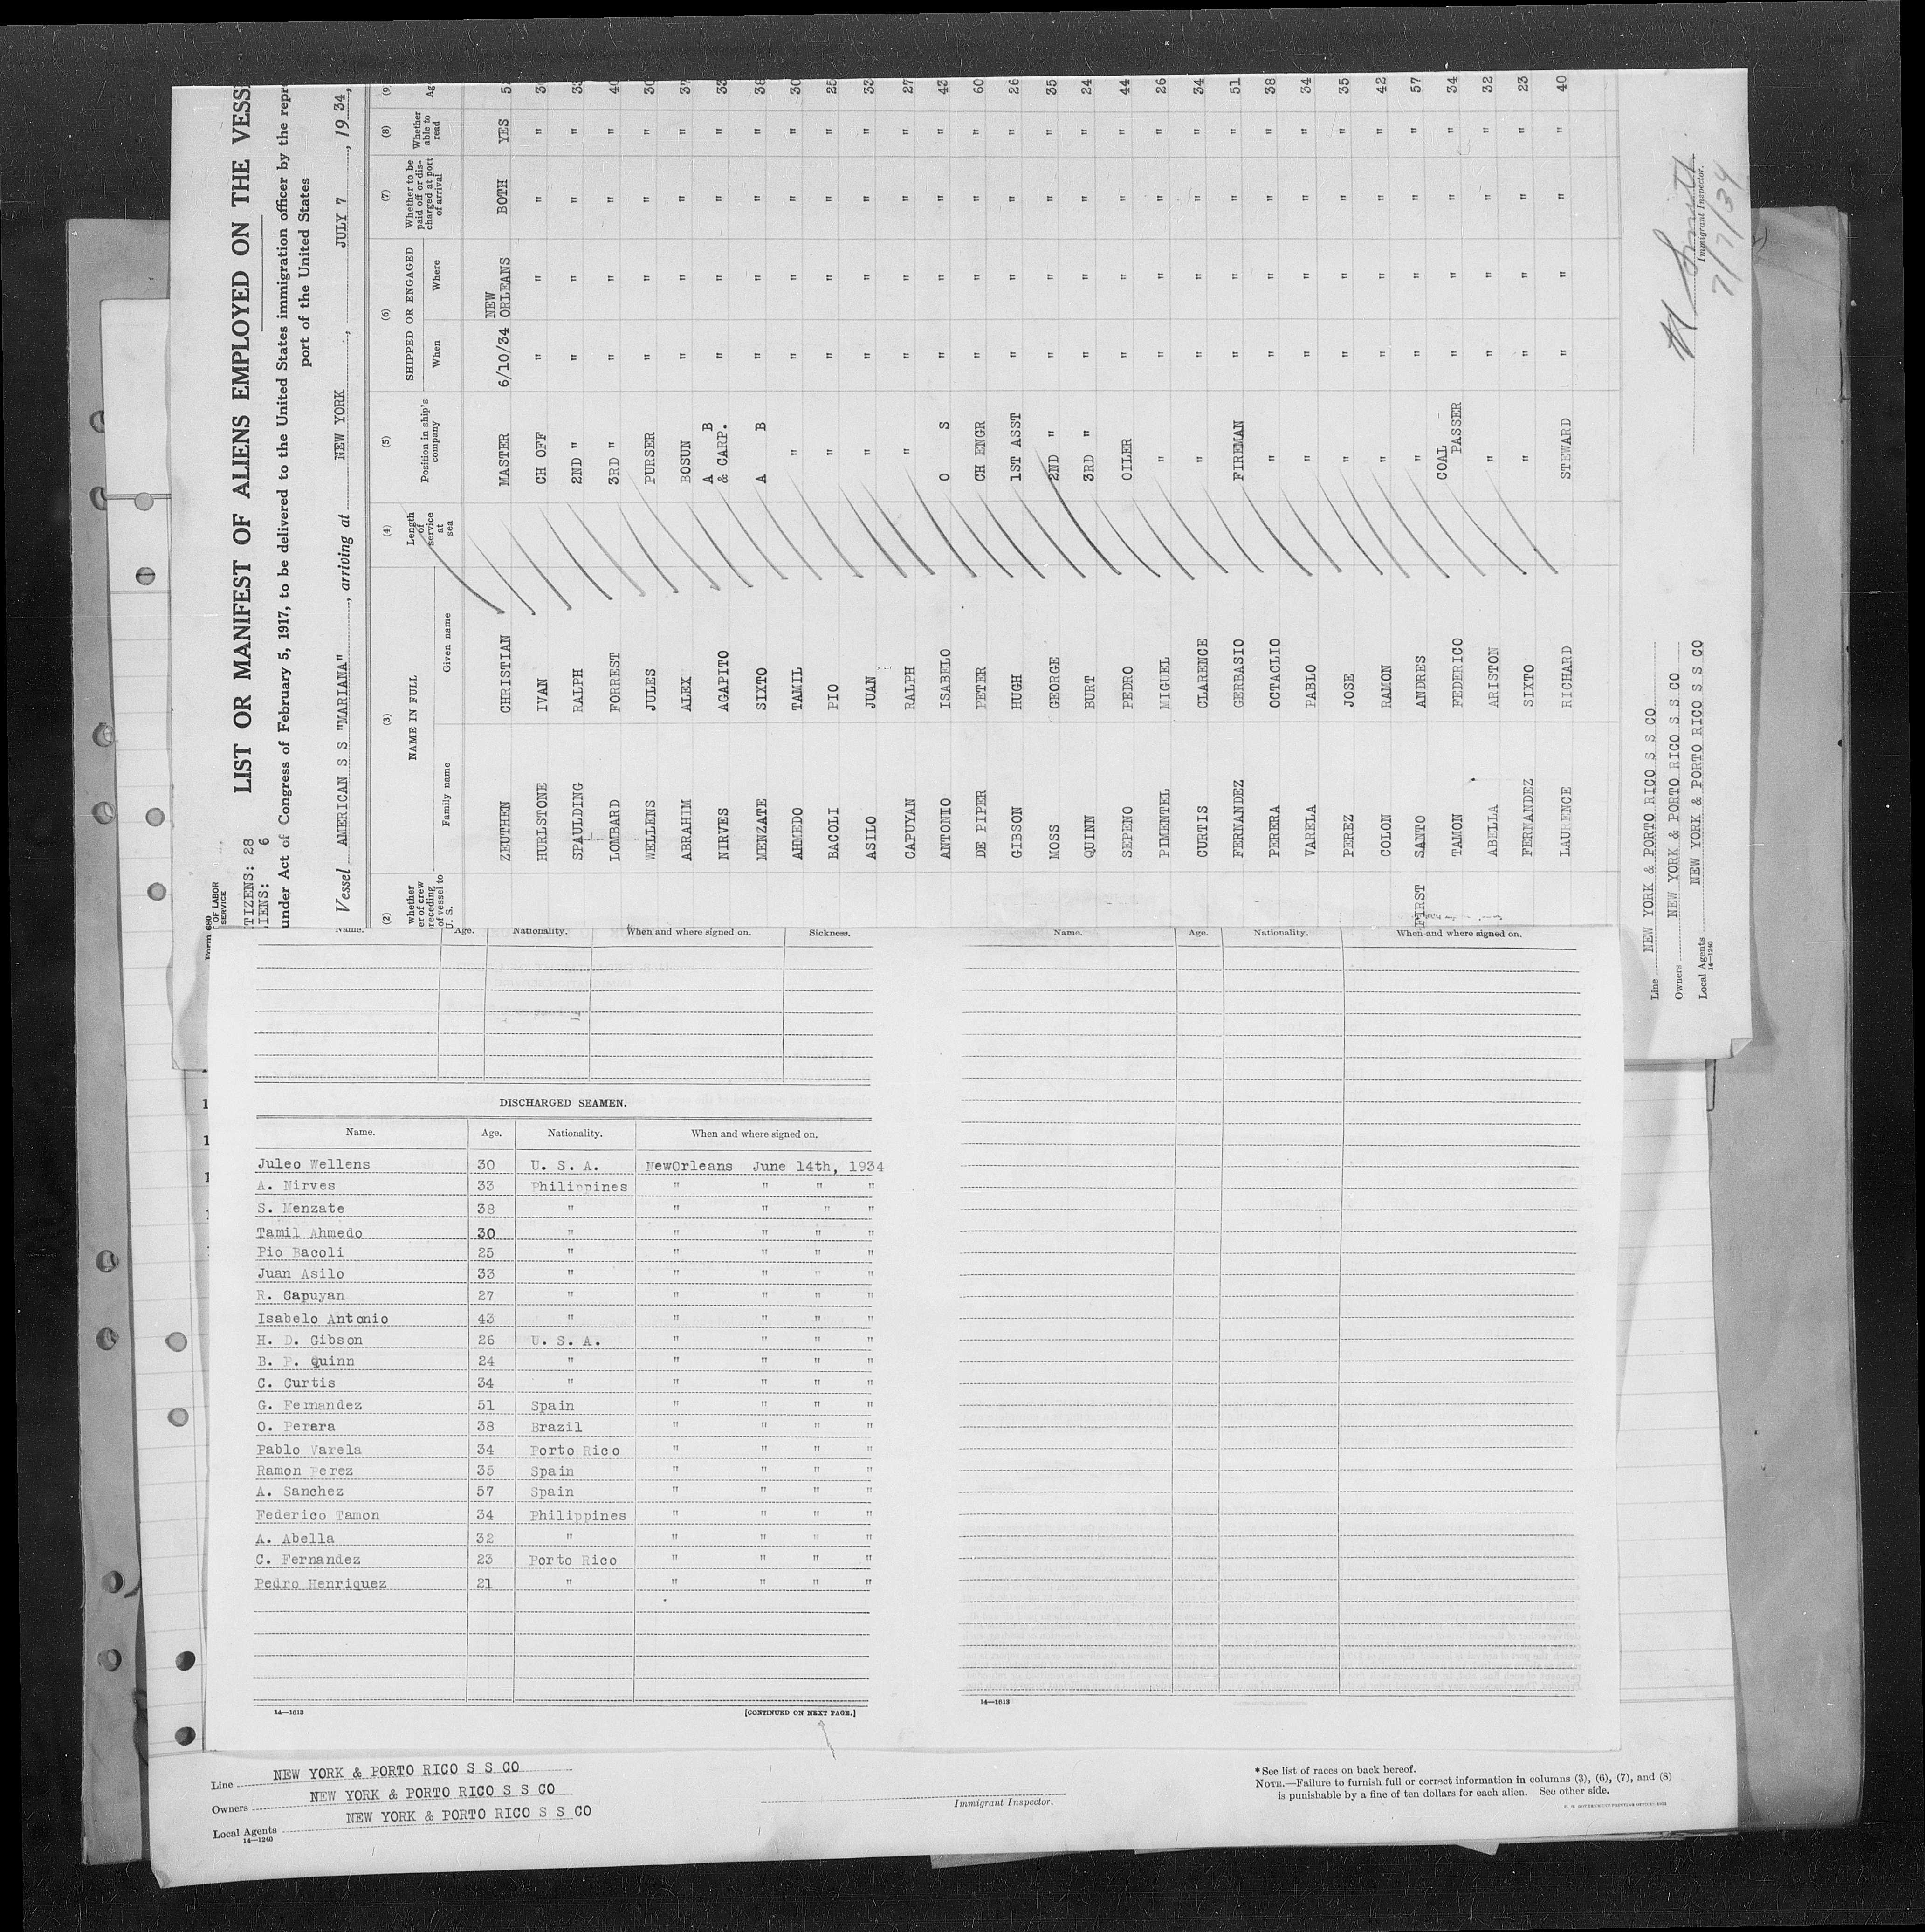 Form 680
OF LABOR
SERVICE
TIZENS: 28
LIENS: 6
LIST OR MANIFEST OF ALIENS EMPLOYED ON THE VESS
under Act of Congress of February 5, 1917, to be delivered to the United States immigration officer by the repr
port of the United States
Vessel AMERICAN S S "MARIANA", arriving at NEW YORK, JULY 7, 1934,
(2) (3) (4) (5) (6) (7) (8) (9
whether
er of crew
receding
of vessel to
U. S.
NAME IN FULL
Family name Given name
Length of service at sea
Position in ship's company
SHIPPED OR ENGAGED
When Where
Whether to be paid off or discharged at port of arrival
Whether able to read
Ag
ZEUTHEN CHRISTIAN MASTER 6/10/34 NEW ORLEANS BOTH YES 5
HURLSTONE IVAN CH OFF " " " " 3
SPAULDING RALPH 2ND " " " " " 3
LOMBARD FORREST 3RD " " " " " 40
WELLENS JULES PURSER " " " " 30
ABRAHIM ALEX BOSUN " " " " 37
NIRVES AGAPITO A B & CARP. " " " " 33
MENZATE SIXTO A B " " " " 38
AHMEDO TAMIL " " " " " 30
BACOLI PIO " " " " " 25
ASILO JUAN " " " " " 33
CAPUYAN RALPH " " " " " 27
ANTONIO ISABELO O S " " " " 43
DE PIPER PETER CH ENGR " " " " 60
GIBSON HUGH 1ST ASST " " " " 26
MOSS GEORGE 2ND " " " " " 35
QUINN BURT 3RD " " " " " 24
SEPENO PEDRO OILER " " " " 44
PIMENTEL MIGUEL " " " " " 26
CURTIS CLARENCE " " " " " 34
FERNANDEZ GERBASIO FIREMAN " " " " 51
PERERA OCTACLIO " " " " " 38
VARELA PABLO " " " " " 34
PEREZ JOSE " " " " " 35
COLON RAMON " " " " " 42
FIRST SANTO ANDRES " " " " " 57
TAMON FEDERICO COAL PASSER " " " " 34
ABELLA ARISTON " " " " " 32
FERNANDEZ SIXTO " " " " " 23
LAURENCE RICHARD STEWARD " " " " 40
Line NEW YORK & PORTO RICO S S CO
Owners NEW YORK & PORTO RICO S S CO
Local Agents NEW YORK & PORTO RICO S S CO
14—1240
Smith
Immigrant Inspector.
7/7/34
Name. Age. Nationality. When and where signed on. Sickness.
Name. Age. Nationality. When and where signed on.
DISCHARGED SEAMEN.
Name. Age. Nationality. When and where signed on.
Juleo Wellens 30 U. S. A. NewOrleans June 14th, 1934
A. Nirves 33 Philippines " " " "
S. Menzate 38 " " " " "
Tamil Ahmedo 30 " " " " "
Pio Bacoli 25 " " " " "
Juan Asilo 33 " " " " "
R. Capuyan 27 " " " " "
Isabelo Antonio 43 " " " " "
H. D. Gibson 26 U. S. A. " " " "
B. P. Quinn 24 " " " " "
C. Curtis 34 " " " " "
G. Fernandez 51 Spain " " " "
O. Perera 38 Brazil " " " "
Pablo Varela 34 Porto Rico " " " "
Ramon Perez 35 Spain " " " "
A. Sanchez 57 Spain " " " "
Federico Tamon 34 Philippines " " " "
A. Abella 32 " " " " "
C. Fernandez 23 Porto Rico " " " "
Pedro Henriquez 21 " " " " "
14—1613 [CONTINUED ON NEXT PAGE.]
14—1613
Line NEW YORK & PORTO RICO S S CO
Owners NEW YORK & PORTO RICO S S CO
Local Agents NEW YORK & PORTO RICO S S CO
14—1240
Immigrant Inspector.
*See list of races on back hereof.
NOTE.—Failure to furnish full or correct information in columns (3), (6), (7), and (8)
is punishable by a fine of ten dollars for each alien. See other side.